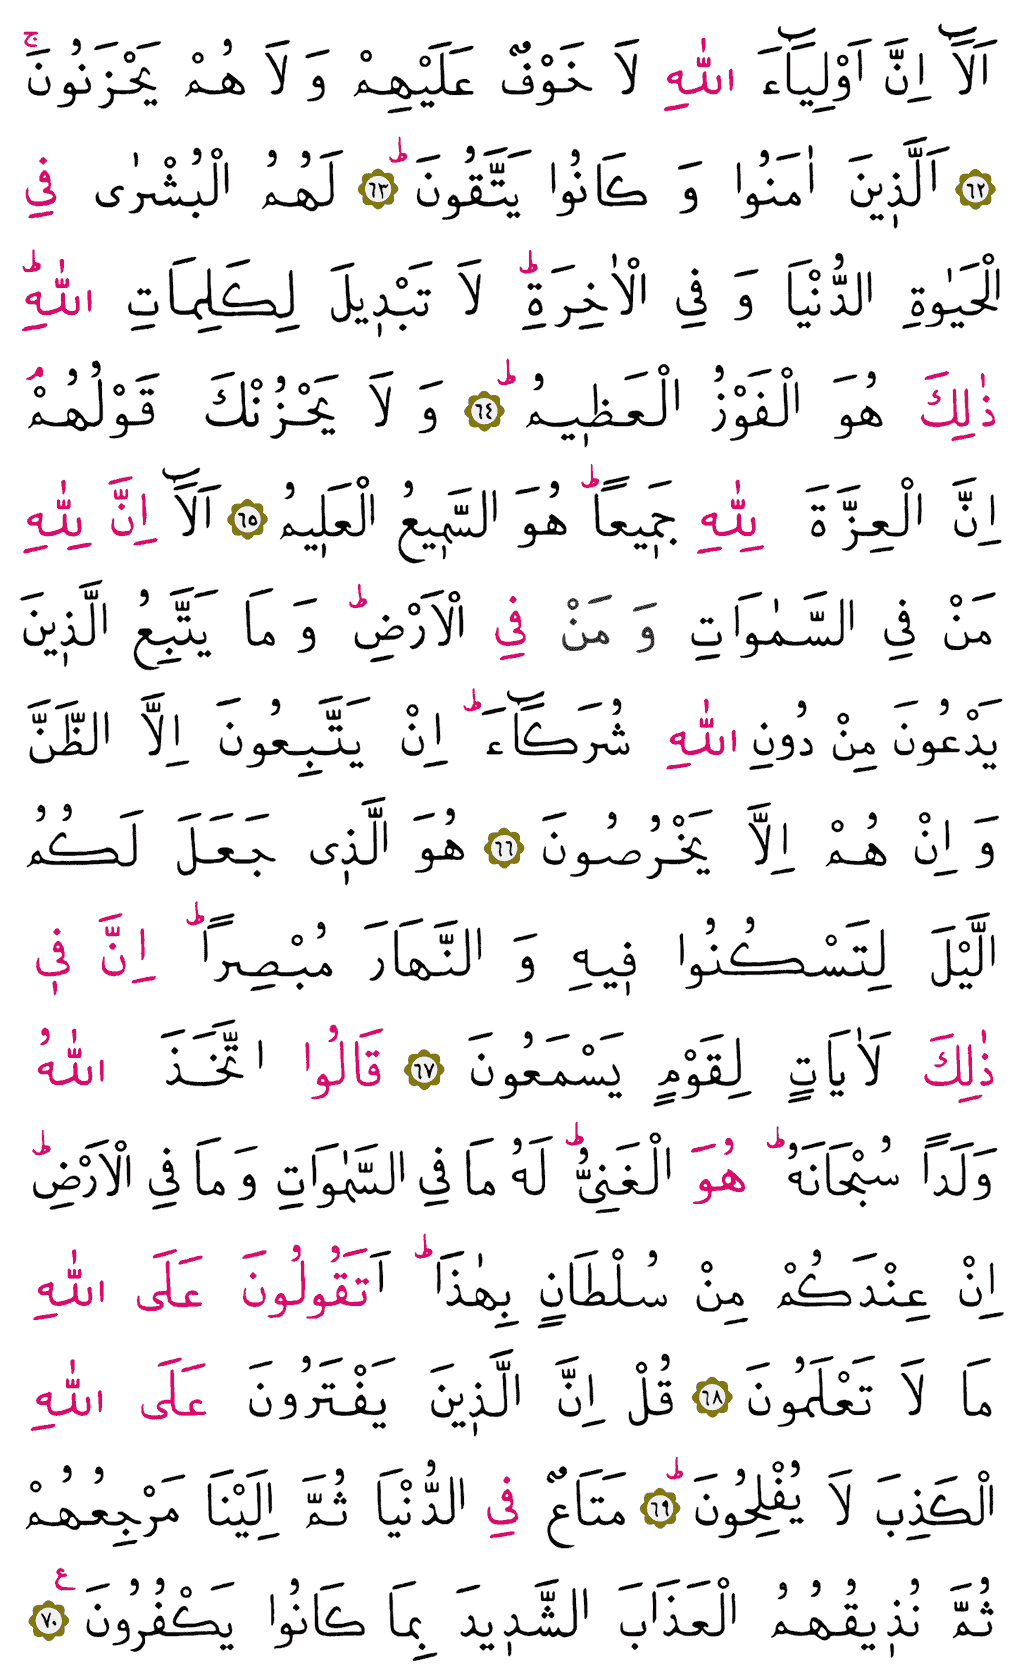 اَلَٓا اِنَّ اَوْلِيَٓاءَ اللّٰهِ لَا خَوْفٌ عَلَيْهِمْ وَ لَا هُمْ يَحْزَنُونَۚ
﴿٦٢﴾ اَلَّذِينَ اٰمَنُوا وَ كَانُوا يَتَّقُونَۜ ﴿٦٣﴾ لَهُمُ الْبُشْرٰى فِي
الْحَيٰوةِ الدُّنْيَا وَ فِي الْاٰخِرَةِۜ لَا تَبْدٖيلَ لِكَلِمَاتِ اللّٰهِۜ
ذٰلِكَ هُوَ الْفَوْزُ الْعَظٖيمُۜ ﴿٦٤﴾ وَ لَا يَحْزُنْكَ قَوْلُهُمْۢ
اِنَّ الْعِزَّةَ لِلّٰهِ جَمٖيعاًۜ هُوَ السَّمٖيعُ الْعَلٖيمُ ﴿٦٥﴾ اَلَٓا اِنَّ لِلّٰهِ
مَنْ فِي السَّمٰوَاتِ وَ مَنْ فِي الْاَرْضِۜ وَ مَا يَتَّبِعُ الَّذٖينَ
يَدْعُونَ مِنْ دُونِ اللّٰهِ شُرَكَٓاءَۜ اِنْ يَتَّبِعُونَ اِلَّا الظَّنَّ
وَ اِنْ هُمْ اِلَّا يَخْرُصُونَ ﴿٦٦﴾ هُوَ الَّذٖى جَعَلَ لَكُمُ
الَّيْلَ لِتَسْكُنُوا فٖيهِ وَ النَّهَارَ مُبْصِراًۜ اِنَّ فٖي
ذٰلِكَ لَاٰيَاتٍ لِقَوْمٍ يَسْمَعُونَ ﴿٦٧﴾ قَالُوا اتَّخَذَ اللّٰهُ
وَلَداً سُبْحَانَهُۜ هُوَ الْغَنِيُّۜ لَهُ مَا فِي السَّمٰوَاتِ وَ مَا فِي الْاَرْضِۜ
اِنْ عِنْدَكُمْ مِنْ سُلْطَانٍ بِهٰذَاۜ اَتَقُولُونَ عَلَى اللّٰهِ
مَا لَا تَعْلَمُونَ ﴿٦٨﴾ قُلْ اِنَّ الَّذٖينَ يَفْتَرُونَ عَلَى اللّٰهِ
الْكَذِبَ لَا يُفْلِحُونَۜ ﴿٦٩﴾ مَتَاعٌ فِي الدُّنْيَا ثُمَّ اِلَيْنَا مَرْجِعُهُمْ
ثُمَّ نُذٖيقُهُمُ الْعَذَابَ الشَّدٖيدَ بِمَا كَانُوا يَكْفُرُونَ ع ﴿٧٠﴾